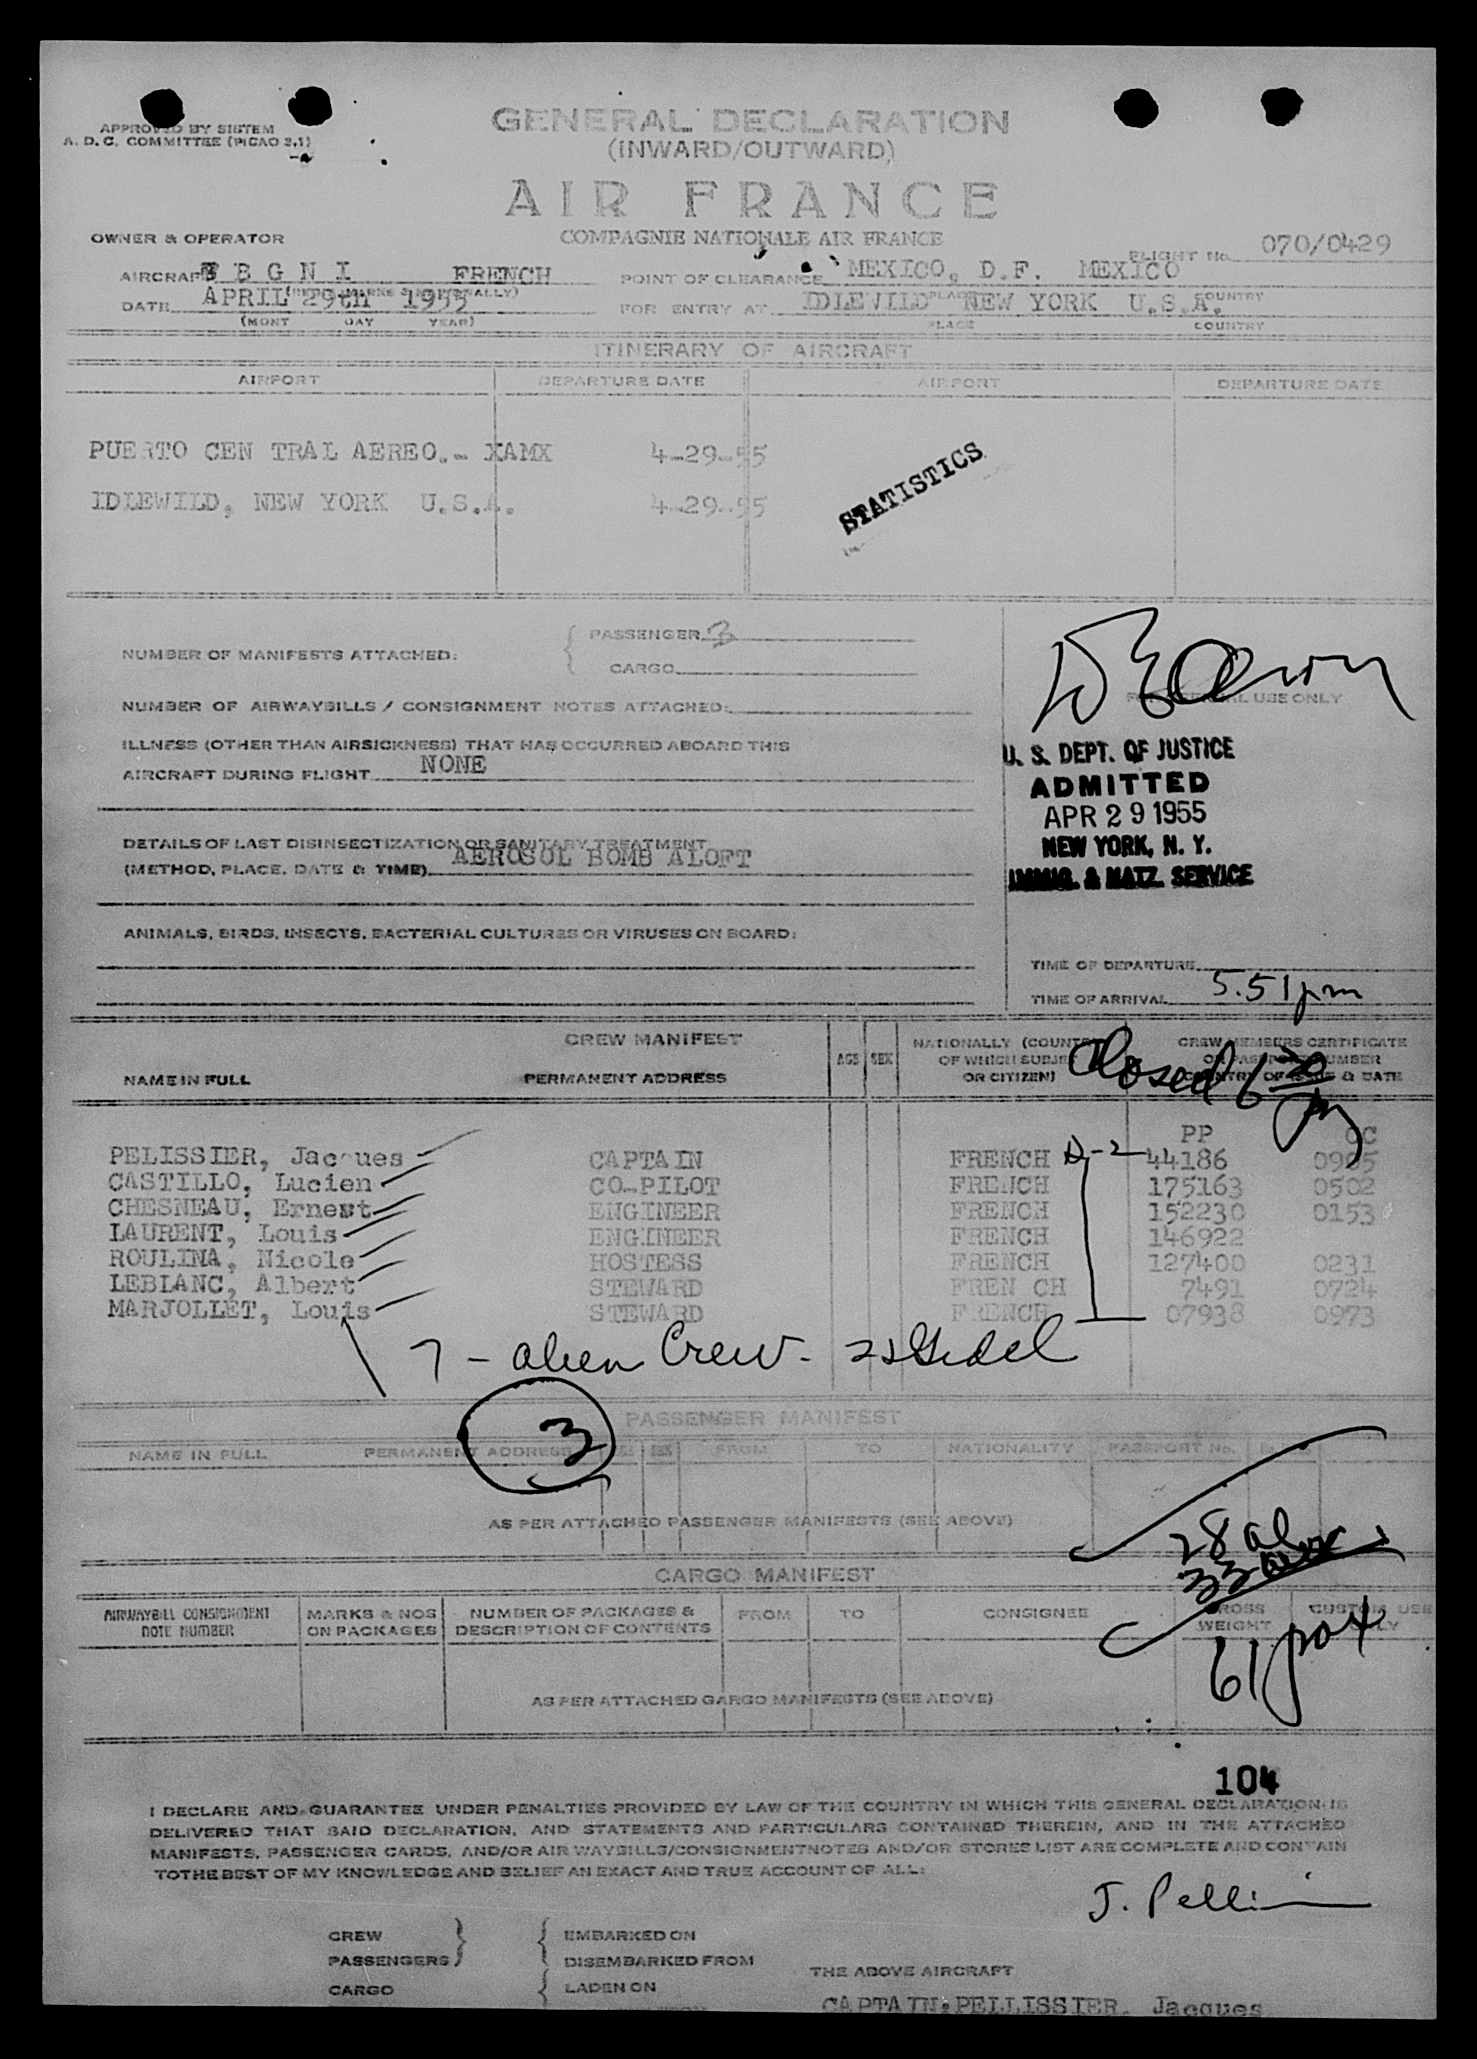 APPROVED BY SISTEM
A. D. C. COMMITTEE (PICAO 2.1)
GENERAL DECLARATION
(INWARD/OUTWARD)
AIR FRANCE
COMPAGNIE NATIONALE AIR FRANCE
OWNER & OPERATOR
FLIGHT No. 070/0429
AIRCRAFT F B G N I FRENCH
POINT OF CLEARANCE MEXICO, D.F. MEXICO
DATE APRIL 29th 1955
FOR ENTRY AT IDLEWILD NEW YORK U.S.A.
PLACE COUNTRY
(MONT DAY YEAR)
PLACE COUNTRY
ITINERARY OF AIRCRAFT
AIRPORT DEPARTURE DATE AIRPORT DEPARTURE DATE
PUERTO CEN TRAL AEREO.- XAMX 4-29-55
IDLEWILD, NEW YORK U.S.A. 4-29-55
STATISTICS
NUMBER OF MANIFESTS ATTACHED:
PASSENGER 3
CARGO
FOR OFFICIAL USE ONLY
NUMBER OF AIRWAYBILLS / CONSIGNMENT NOTES ATTACHED:
ILLNESS (OTHER THAN AIRSICKNESS) THAT HAS OCCURRED ABOARD THIS
AIRCRAFT DURING FLIGHT NONE
U. S. DEPT. OF JUSTICE
ADMITTED
APR 29 1955
NEW YORK, N. Y.
IMMIG. & NATZ. SERVICE
DETAILS OF LAST DISINSECTIZATION OR SANITARY TREATMENT
(METHOD, PLACE, DATE & TIME) AEROSOL BOMB ALOFT
ANIMALS, BIRDS, INSECTS, BACTERIAL CULTURES OR VIRUSES ON BOARD:
TIME OF DEPARTURE
TIME OF ARRIVAL 5.51 pm
CREW MANIFEST
NAME IN FULL PERMANENT ADDRESS AGE SEX
NATIONALLY (COUNTRY
OF WHICH SUBJECT
OR CITIZEN)
CREW MEMBERS CERTIFICATE
OR PASSPORT NUMBER
COUNTRY OF ISSUE & DATE
Closed 6 30
PP CC
PELISSIER, Jacques CAPTAIN FRENCH D-2 44186 0905
CASTILLO, Lucien CO-PILOT FRENCH 175163 0502
CHESNEAU, Ernest ENGINEER FRENCH 152230 0153
LAURENT, Louis ENGINEER FRENCH 146922
ROULINA, Nicole HOSTESS FRENCH 127400 0231
LEBLANC, Albert STEWARD FREN CH 7491 0724
MARJOLLET, Louis STEWARD FRENCH 07938 0973
7 - alien Crew -
3
PASSENGER MANIFEST
NAME IN FULL PERMANENT ADDRESS AGE SEX FROM TO NATIONALITY PASSPORT No.
AS PER ATTACHED PASSENGER MANIFESTS (SEE ABOVE)
28
33
61 pax
CARGO MANIFEST
AIRWAYBILL CONSIGNMENT
NOTE NUMBER
MARKS & NOS
ON PACKAGES
NUMBER OF PACKAGES &
DESCRIPTION OF CONTENTS
FROM TO CONSIGNEE
GROSS
WEIGHT
CUSTOM USE
ONLY
AS PER ATTACHED CARGO MANIFESTS (SEE ABOVE)
104
I DECLARE AND GUARANTEE UNDER PENALTIES PROVIDED BY LAW OF THE COUNTRY IN WHICH THIS GENERAL DECLARATION IS
DELIVERED THAT SAID DECLARATION, AND STATEMENTS AND PARTICULARS CONTAINED THEREIN, AND IN THE ATTACHED
MANIFESTS, PASSENGER CARDS, AND/OR AIR WAYBILLS/CONSIGNMENTNOTES AND/OR STORES LIST ARE COMPLETE AND CONTAIN
TOTHE BEST OF MY KNOWLEDGE AND BELIEF AN EXACT AND TRUE ACCOUNT OF ALL:
CREW
PASSENGERS
CARGO
EMBARKED ON
DISEMBARKED FROM
LADEN ON
THE ABOVE AIRCRAFT
CAPTAIN: PELLISSIER, Jacques